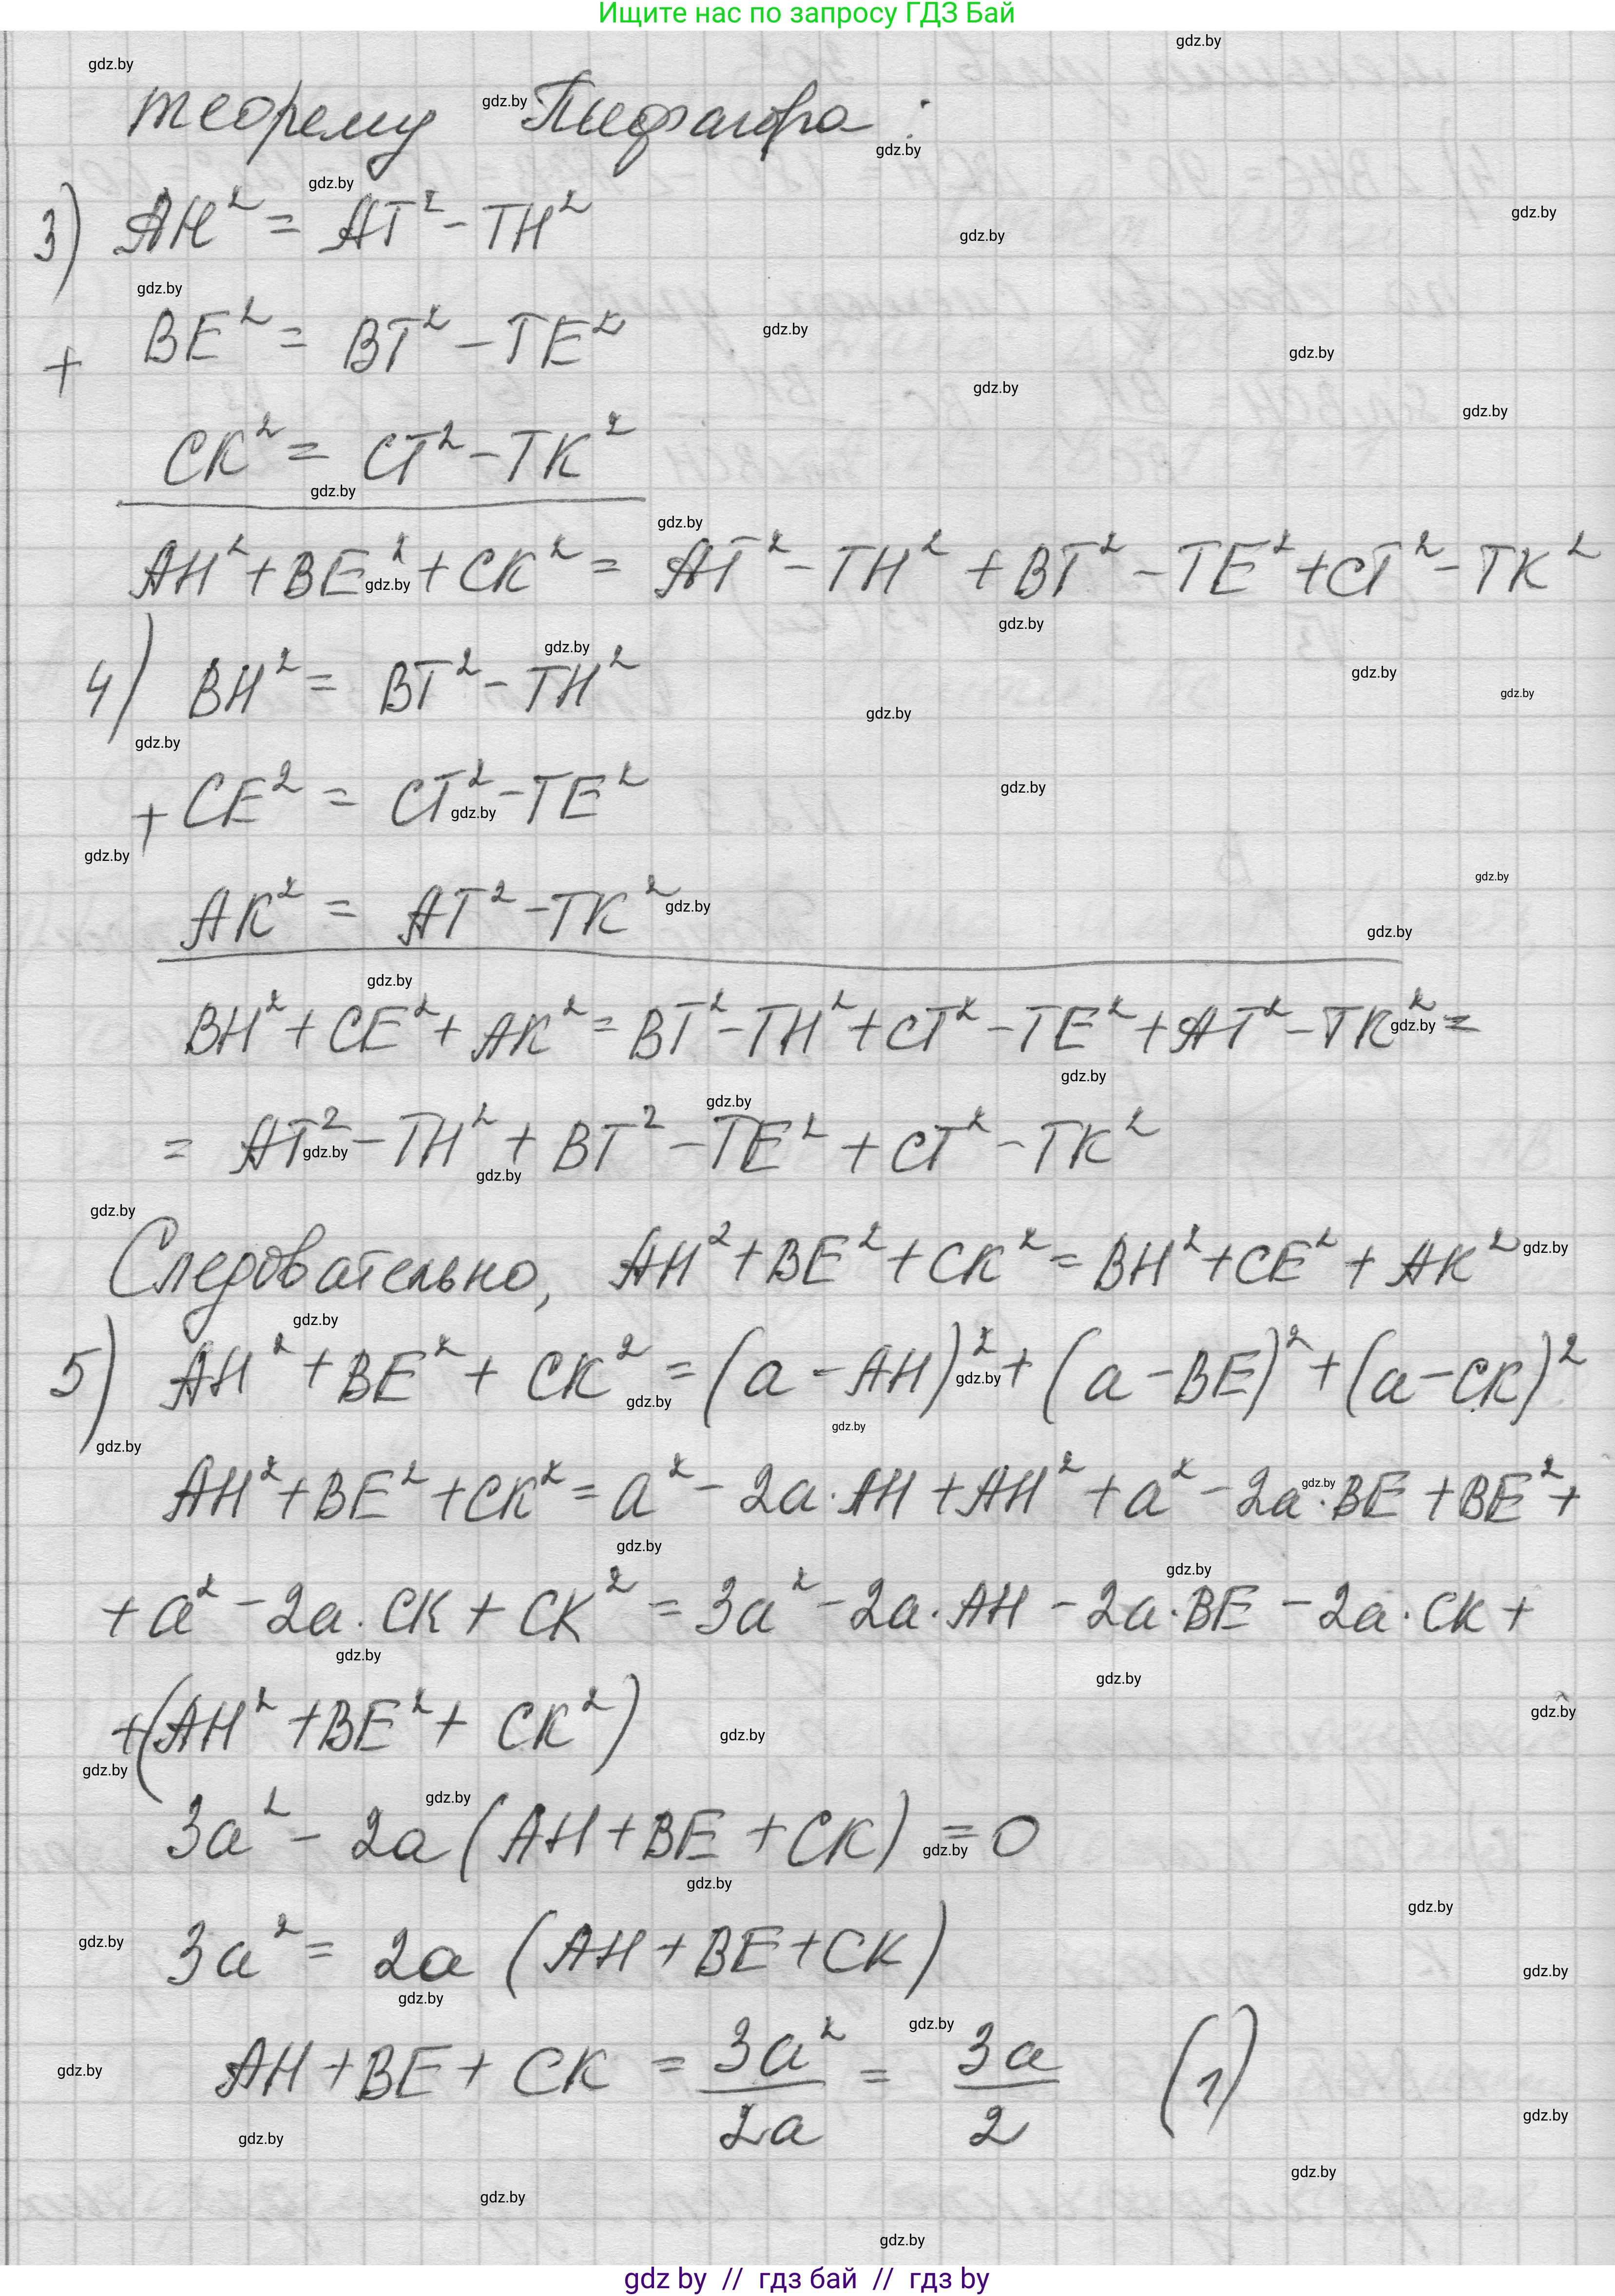 Ищите нас по запросу ГДЗ Бай
теорему Пифагора:
3) AH² = AT² - TH²
+ BE² = BT² - TE²
CK² = CT² - TK²
AH² + BE² + CK² = AT² - TH² + BT² - TE² + CT² - TK²
4) BH² = BT² - TH²
+ CE² = CT² - TE²
AK² = AT² - TK²
BH² + CE² + AK² = BT² - TH² + CT² - TE² + AT² - TK² =
= AT² - TH² + BT² - TE² + CT² - TK²
Следовательно, AH² + BE² + CK² = BH² + CE² + AK²
5) AH² + BE² + CK² = (a - AH)² + (a - BE)² + (a - CK)²
AH² + BE² + CK² = a² - 2a · AH + AH² + a² - 2a · BE + BE² +
+ a² - 2a · CK + CK² = 3a² - 2a · AH - 2a · BE - 2a · CK +
+ (AH² + BE² + CK²)
3a² - 2a (AH + BE + CK) = 0
3a² = 2a (AH + BE + CK)
AH + BE + CK = 3a²/2a = 3a/2 (1)
gdz by // гдз бай // гдз by